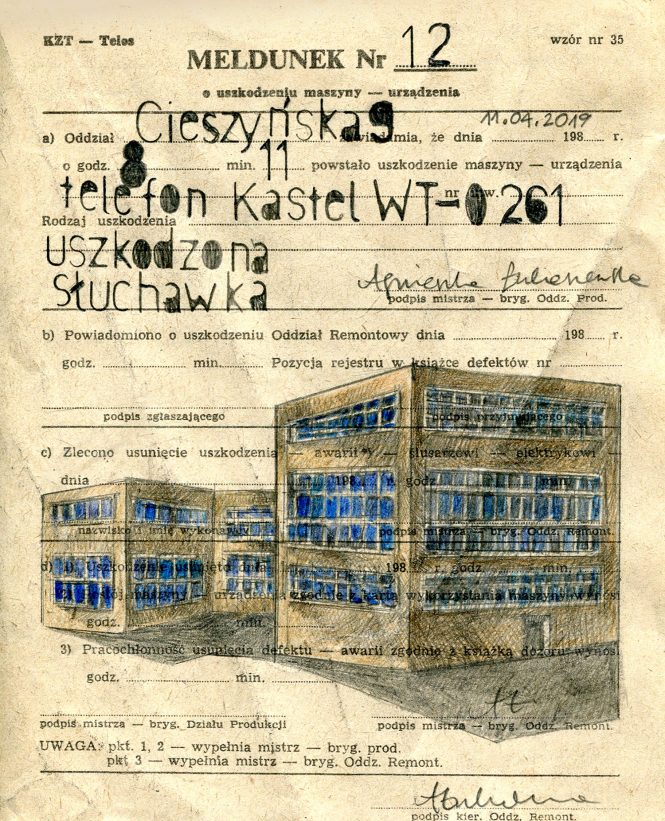 KZT — Telos
wzór nr 35
MELDUNEK Nr 12
o uszkodzeniu maszyny — urządzenia
11.04.2019
a) Oddział Cieszyńska 9 zawiadamia, że dnia 198 r.
o godz. 8 min. 11 powstało uszkodzenie maszyny — urządzenia
telefon Kastel WT-0261 nr
Rodzaj uszkodzenia
uszkodzona
słuchawka
Agnieszka
podpis mistrza — bryg. Oddz. Prod.
b) Powiadomiono o uszkodzeniu Oddział Remontowy dnia 198 r.
godz. min. Pozycja rejestru w książce defektów nr
podpis zgłaszającego podpis przyjmującego
c) Zlecono usunięcie uszkodzenia — awarii*) — ślusarzowi — elektrykowi —
dnia 198 r. godz. min.
nazwisko i imię wykonawcy podpis mistrza — bryg. Oddz. Remont.
d) 1) Uszkodzenie usunięto dnia 198 r. godz. min.
2) Postój maszyny — urządzenia zgodnie z kartą wykorzystania maszyny wynosi
godz. min.
3) Pracochłonność usunięcia defektu — awarii zgodnie z książką dozoru wynosi
godz. min.
podpis mistrza — bryg. Działu Produkcji podpis mistrza — bryg. Oddz. Remont.
UWAGA: pkt. 1, 2 — wypełnia mistrz — bryg. prod.
pkt 3 — wypełnia mistrz — bryg. Oddz. Remont.
podpis kier. Oddz. Remont.